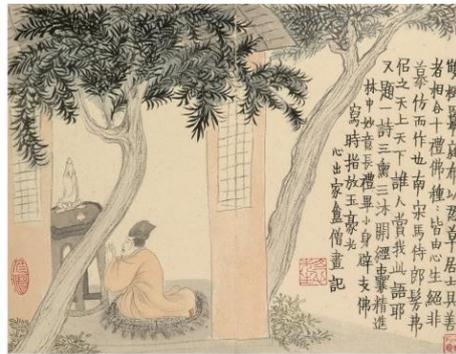 者相合十禮佛種種皆由心生絕非
慕仿而作也南宋馬侍郎髣弗
侶之天上天下誰人賞我此語耶
又題一詩三熏三沐開經囊精進
林中妙音長禮畢小身辟支佛
寫時指放玉豪光
心出家盦僧畫記